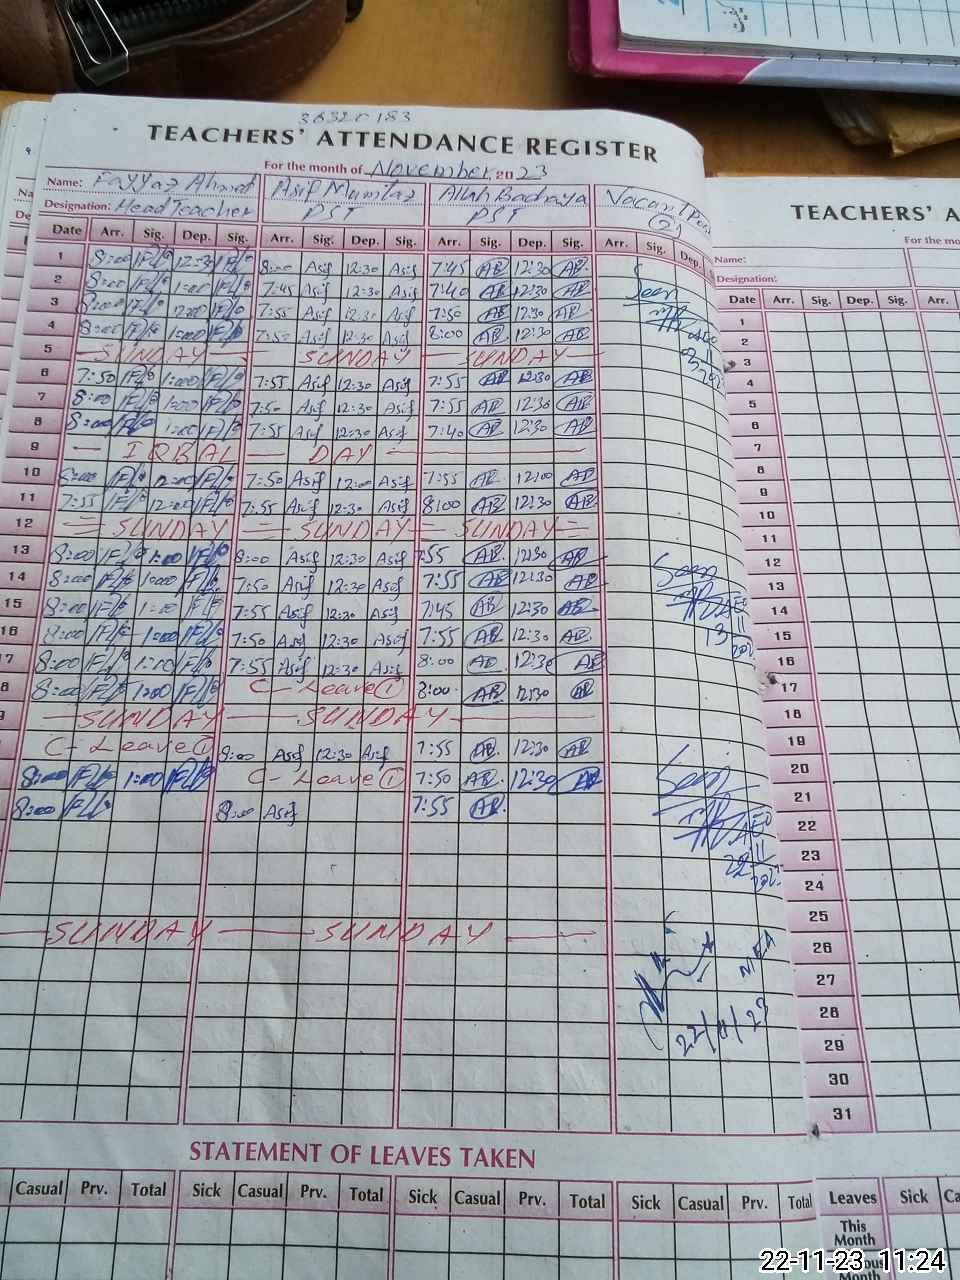 38320183
TEACHERS' ATTENDANCE REGISTER
For the month of November, 2023
Name: Fayyaz Ahmad Asif Mumtaz Allah Bachaya Vacant Post
Designation: Head Teacher PST PST (2)
Date Arr. Sig. Dep. Sig. Arr. Sig. Dep. Sig. Arr. Sig. Dep. Sig. Arr. Sig. Dep.
1 8:00 12:30 8:00 Asif 12:30 Asif 7:45 AB 12:30 AB
2 8:00 1:00 7:45 Asif 12:30 Asif 7:40 AB 12:30 AB Seen
3 8:00 7:55 Asif 12:30 Asif 7:50 AB 12:30 AB
4 8:00 1:00 7:50 Asif 12:30 Asif 8:00 AB 12:30 AB AEO
5 SUNDAY SUNDAY SUNDAY
6 7:50 1:00 7:55 Asif 12:30 Asif 7:55 AB 12:30 AB
7 8:00 1:00 7:50 Asif 12:30 Asif 7:55 AB 12:30 AB
8 8:00 1:00 7:55 Asif 12:30 Asif 7:40 AB 12:30 AB
9 IQBAL DAY
10 8:00 12:00 7:50 Asif 12:00 Asif 7:55 AB 12:00 AB
11 7:55 12:00 7:55 Asif 12:30 Asif 8:00 AB 12:30 AB
12 SUNDAY SUNDAY SUNDAY
13 8:00 1:00 8:00 Asif 12:30 Asif 7:55 AB 12:30 AB Seen
14 8:00 1:00 7:50 Asif 12:30 Asif 7:55 AB 12:30 AB
15 8:00 1:00 7:55 Asif 12:30 Asif 7:45 AB 12:30 AB AEO
16 8:00 1:00 7:50 Asif 12:30 Asif 7:55 AB 12:30 AB 13/11
17 8:00 1:00 7:55 Asif 12:30 Asif 8:00 AB 12:30 AB
8 8:00 1:00 C-Leave (1) 8:00 AB 12:30 AB
SUNDAY SUNDAY
C-Leave (1) 8:00 Asif 12:30 Asif 7:55 AB 12:30 AB
8:00 1:00 C-Leave (1) 7:50 AB 12:30 AB Seen
8:00 8:00 Asif 7:55 AB
AEO
22/11
SUNDAY SUNDAY
22/11/23
STATEMENT OF LEAVES TAKEN
Casual Prv. Total Sick Casual Prv. Total Sick Casual Prv. Total Sick Casual Prv. Total
TEACHERS' A
For the mo
Name:
Designation:
Date Arr. Sig. Dep. Sig. Arr.
1
2
3
4
5
6
7
8
9
10
11
12
13
14
15
16
17
18
19
20
21
22
23
24
25
26
27
28
29
30
31
Leaves Sick Ca
This
Month
22-11-23 11:24